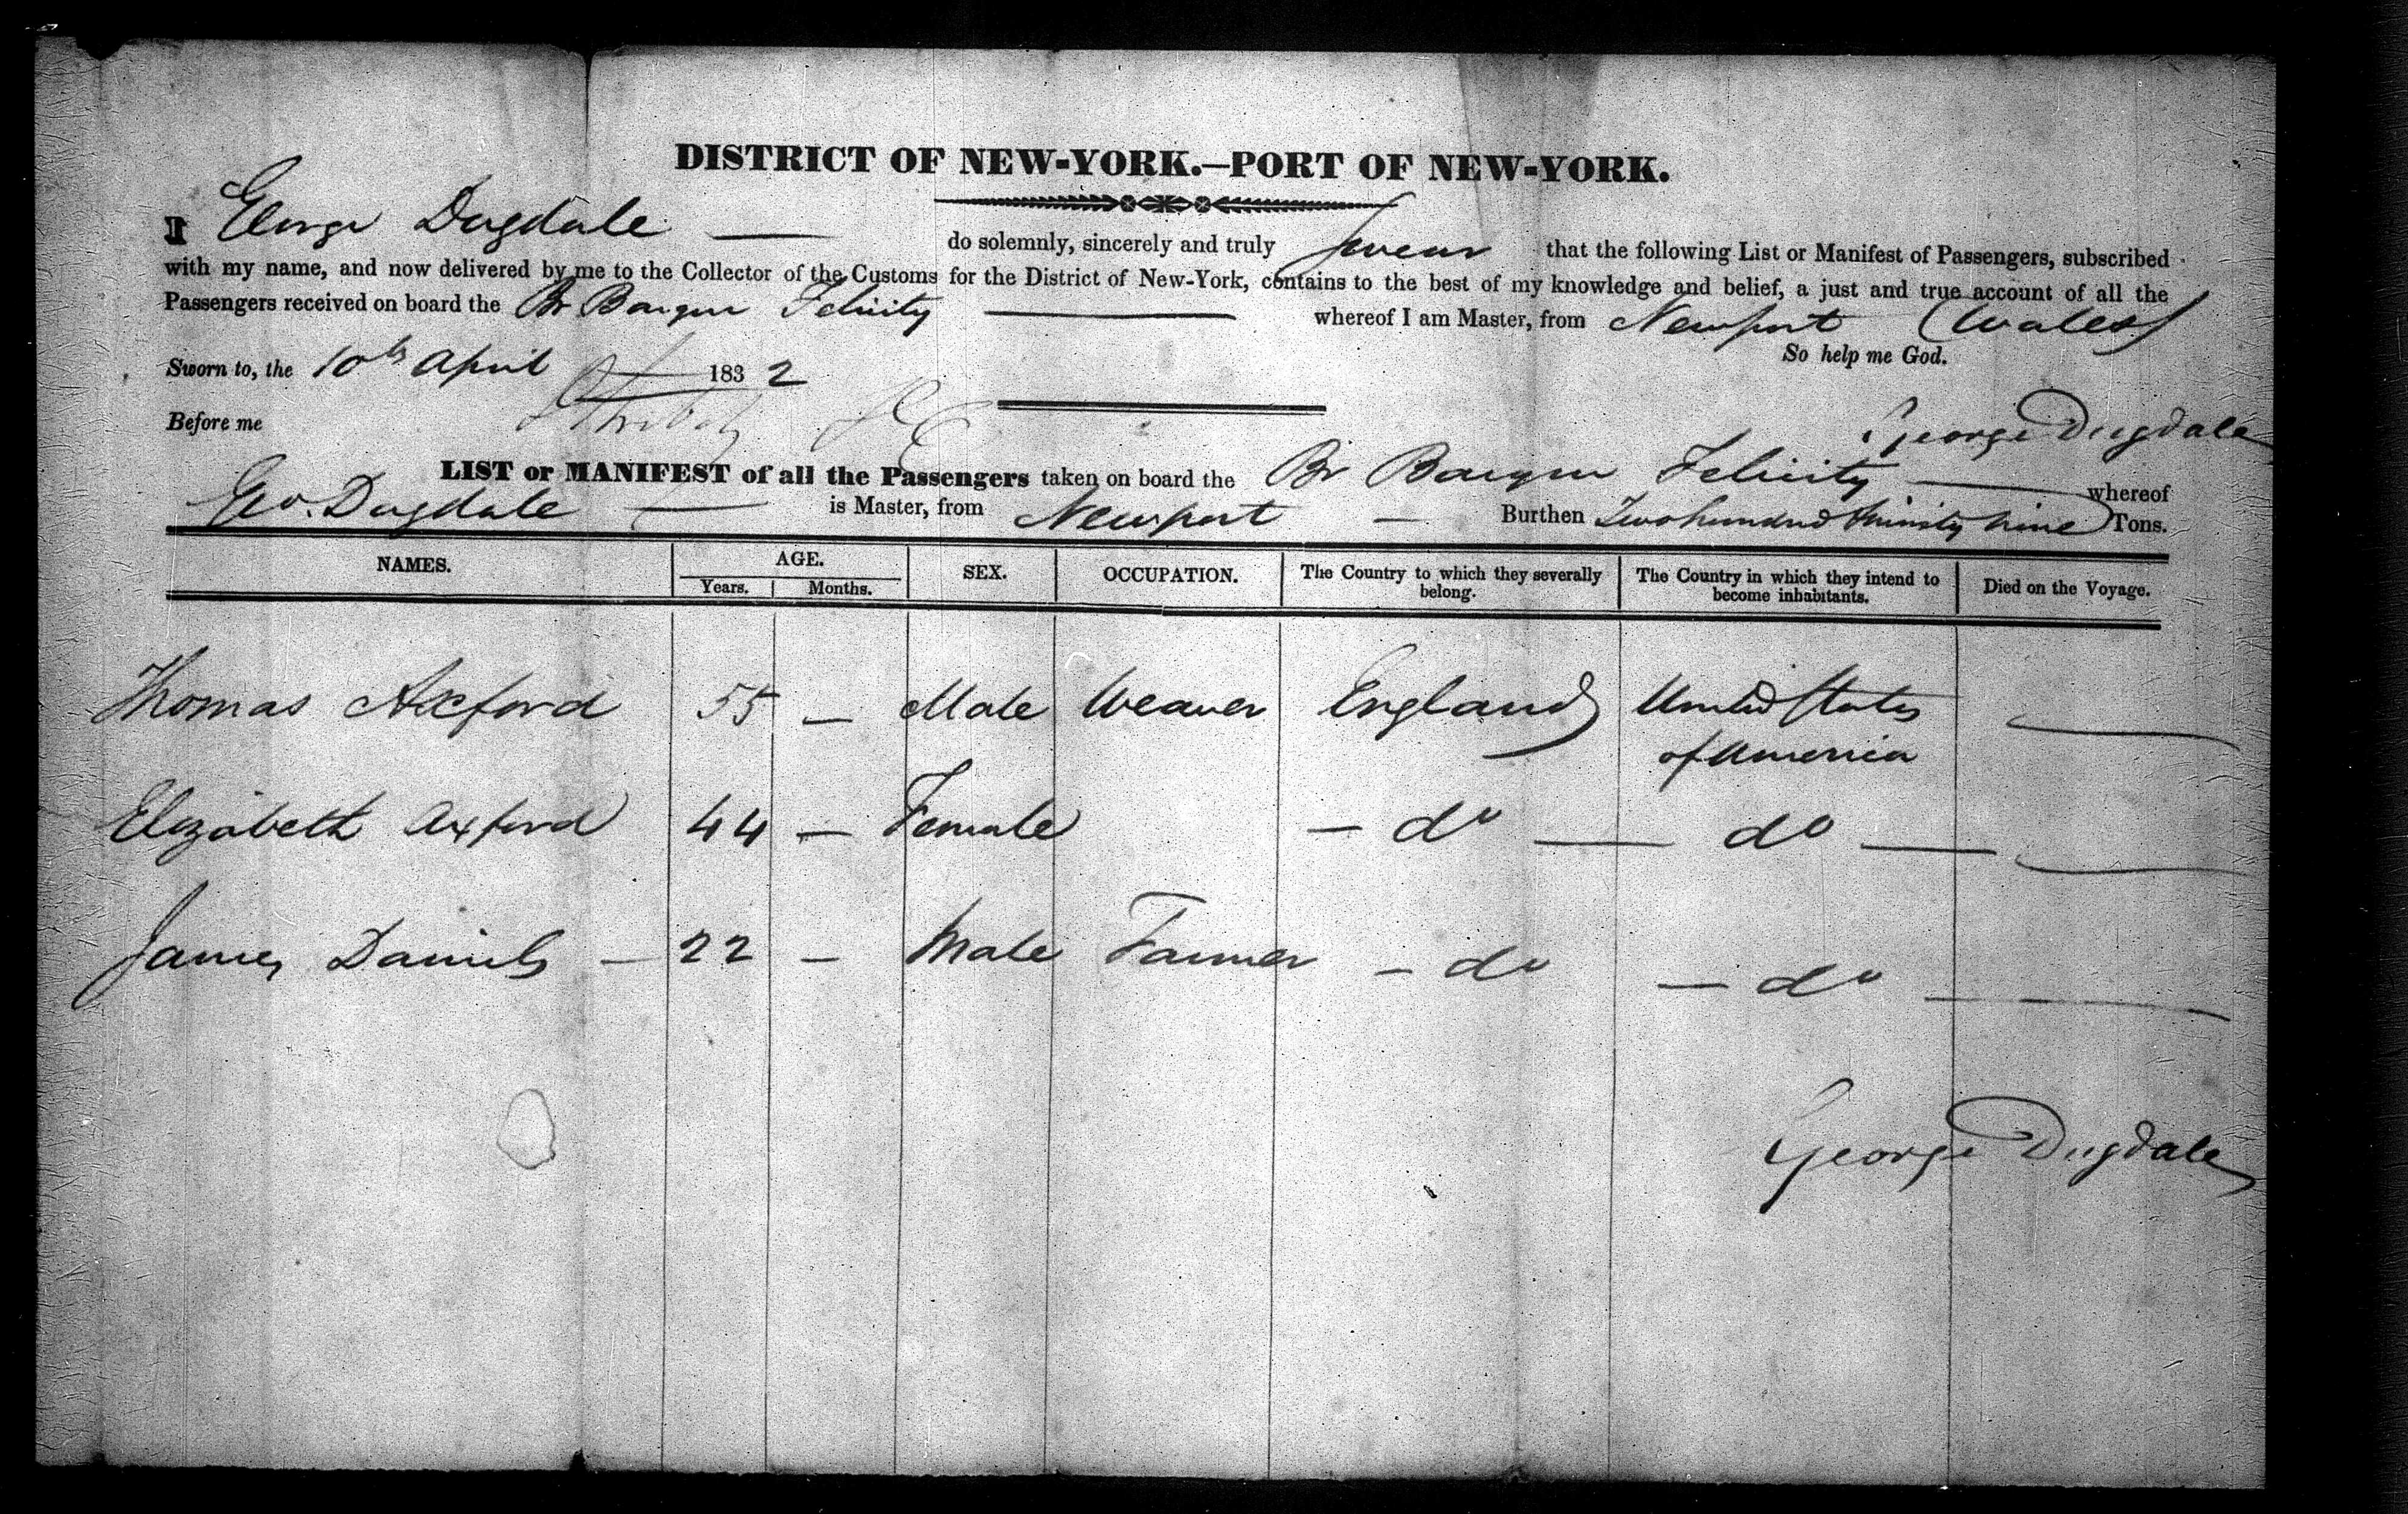 DISTRICT OF NEW-YORK.—PORT OF NEW-YORK.
I George Dugdale — do solemnly, sincerely and truly swear that the following List or Manifest of Passengers, subscribed
with my name, and now delivered by me to the Collector of the Customs for the District of New-York, contains to the best of my knowledge and belief, a just and true account of all the
Passengers received on board the Br Barque Felicity — whereof I am Master, from Newport (Wales)
So help me God.
Sworn to, the 10th April 1832
Before me
George Dugdale
LIST or MANIFEST of all the Passengers taken on board the Br Barque Felicity — whereof
Geo. Dugdale — is Master, from Newport — Burthen Two hundred thirty nine Tons.
NAMES. AGE. SEX. OCCUPATION. The Country to which they severally belong. The Country in which they intend to become inhabitants. Died on the Voyage.
Years. Months.
Thomas Axford 55 — Male Weaver England United States —
of America
Elizabeth Axford 44 — Female — do — do — —
James Daniels — 22 — Male Farmer — do — do —
George Dugdale